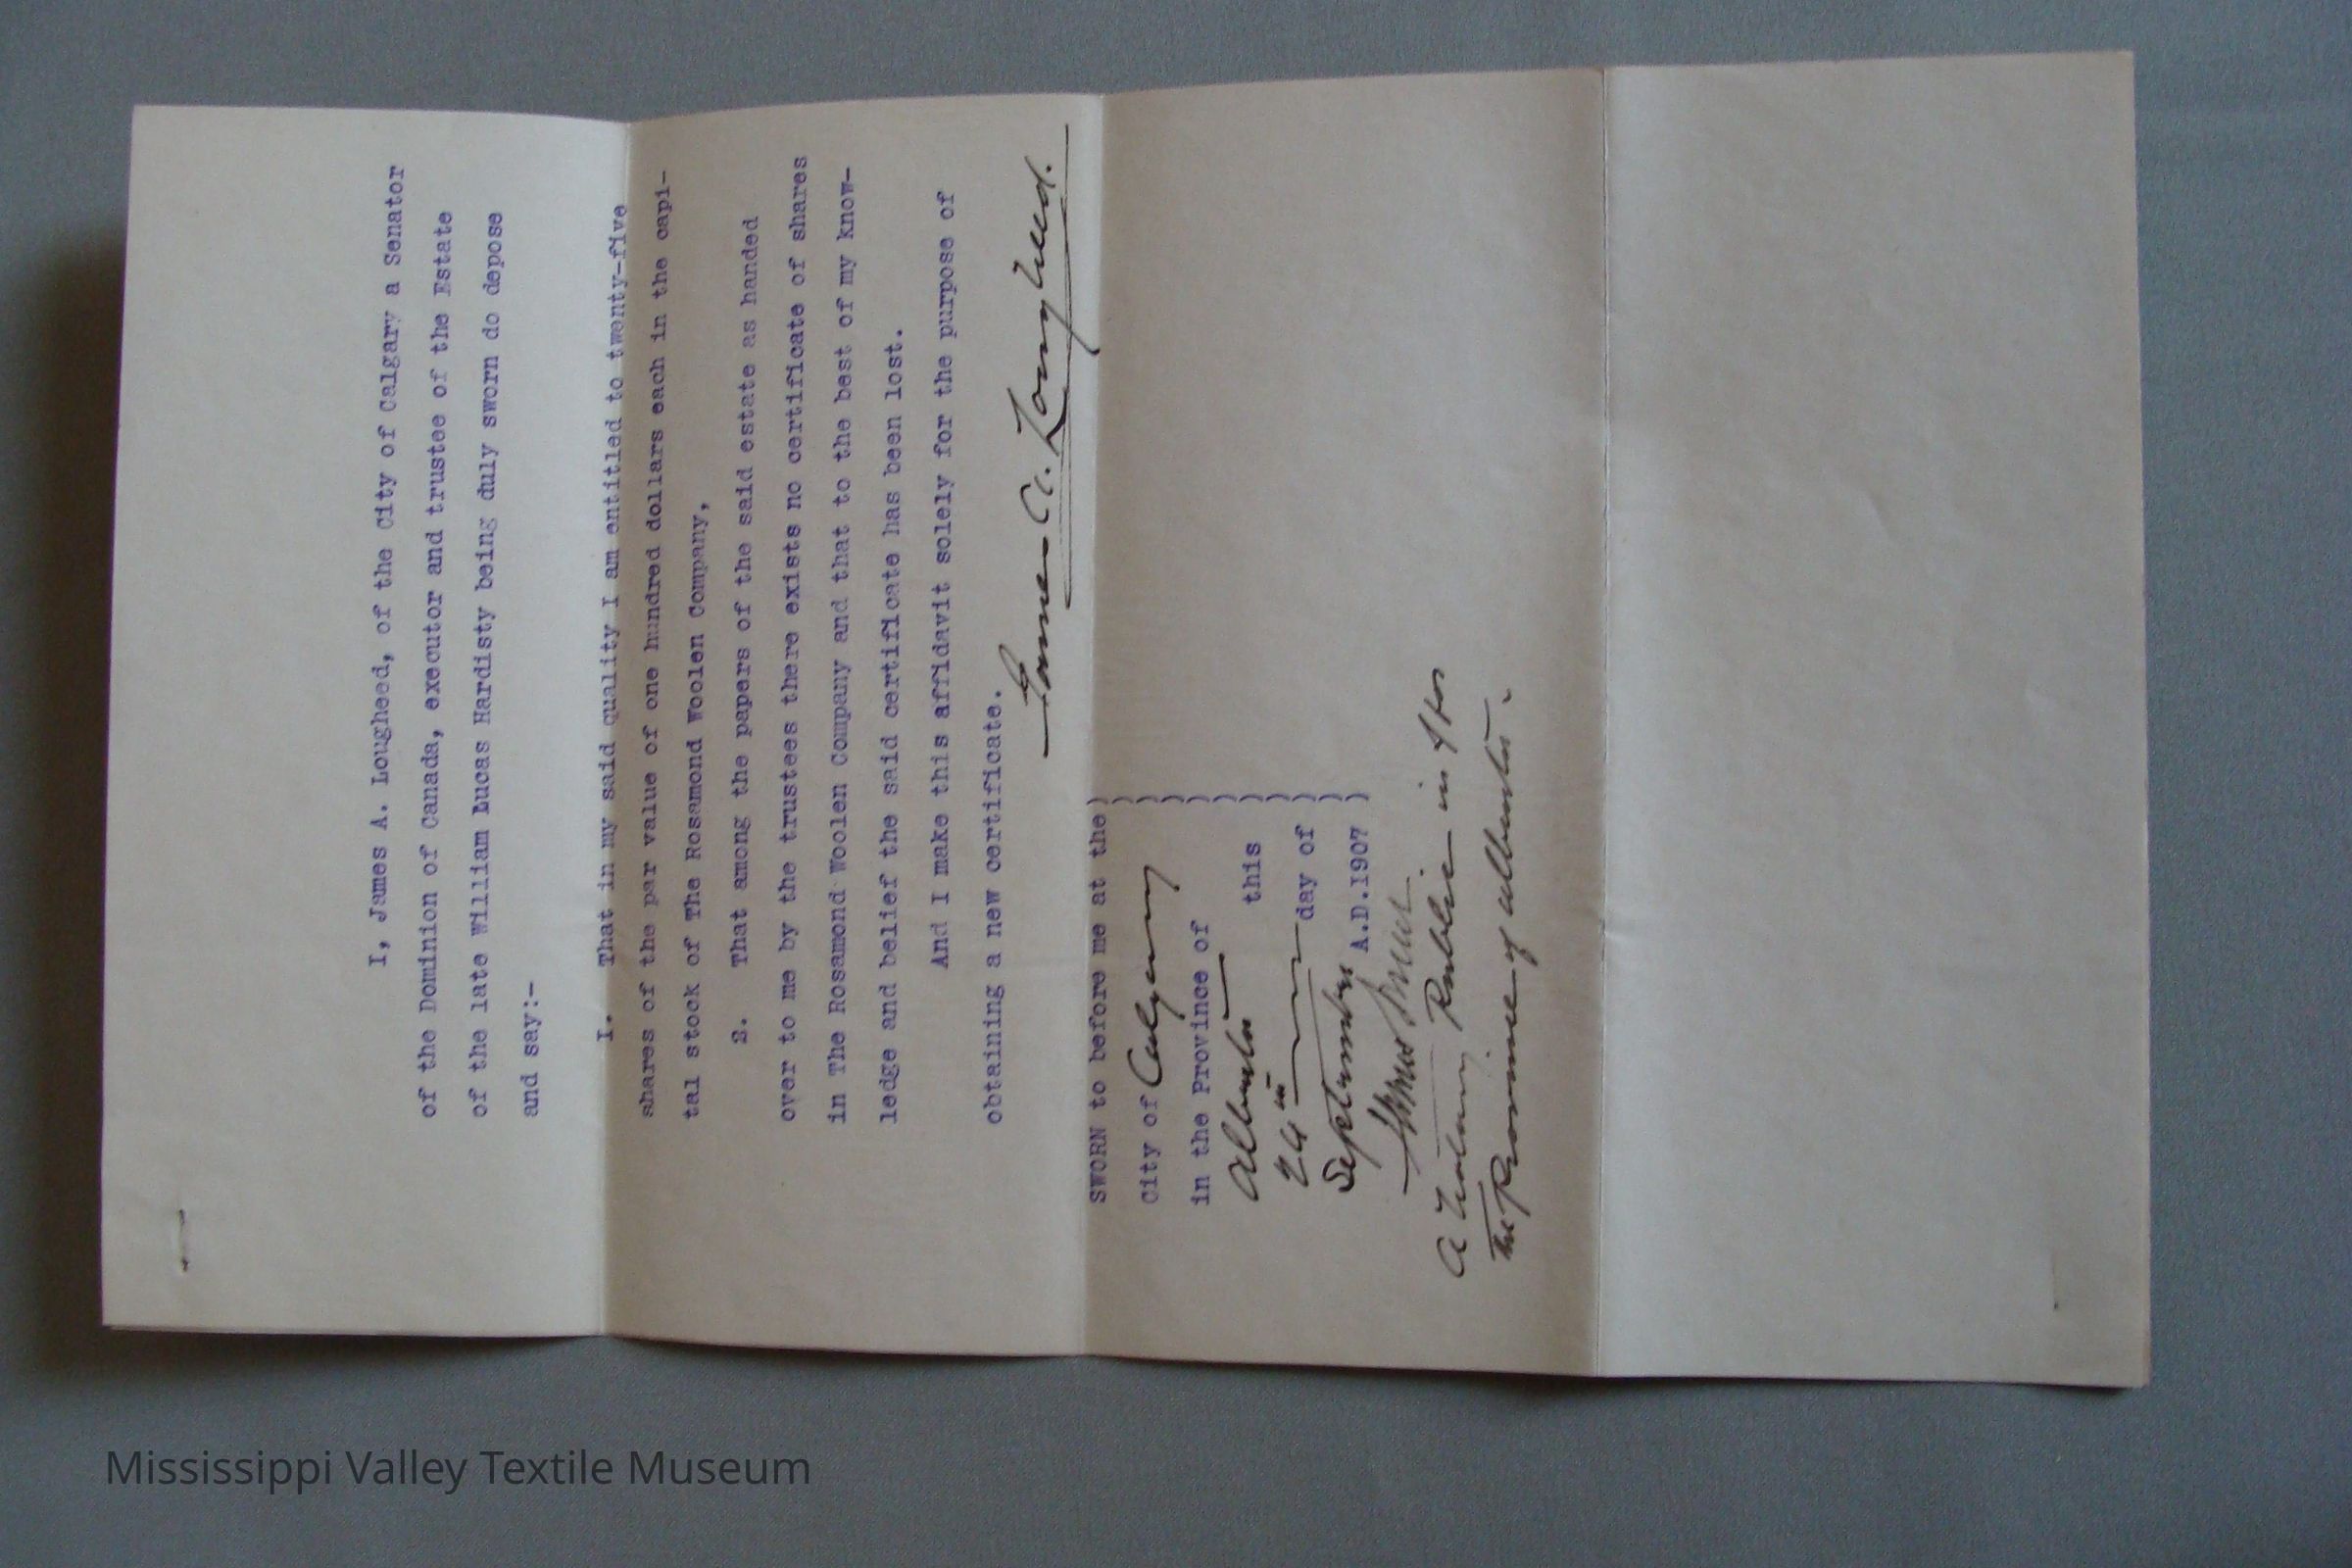 I, James A. Lougheed, of the City of Calgary a Senator
of the Dominion of Canada, executor and trustee of the Estate
of the late William Lucas Hardisty being duly sworn do depose
and say:-
I. That in my said quality I am entitled to twenty-five
shares of the par value of one hundred dollars each in the capi-
tal stock of The Rosamond Woolen Company,
2. That among the papers of the said estate as handed
over to me by the trustees there exists no certificate of shares
in The Rosamond Woolen Company and that to the best of my know-
ledge and belief the said certificate has been lost.
And I make this affidavit solely for the purpose of
obtaining a new certificate.
James A. Lougheed.
SWORN to before me at the )
City of Calgary )
in the Province of )
Alberta this )
24th day of )
September A.D.1907 )
A Notary Public in &for
the Province of Alberta.
Mississippi Valley Textile Museum